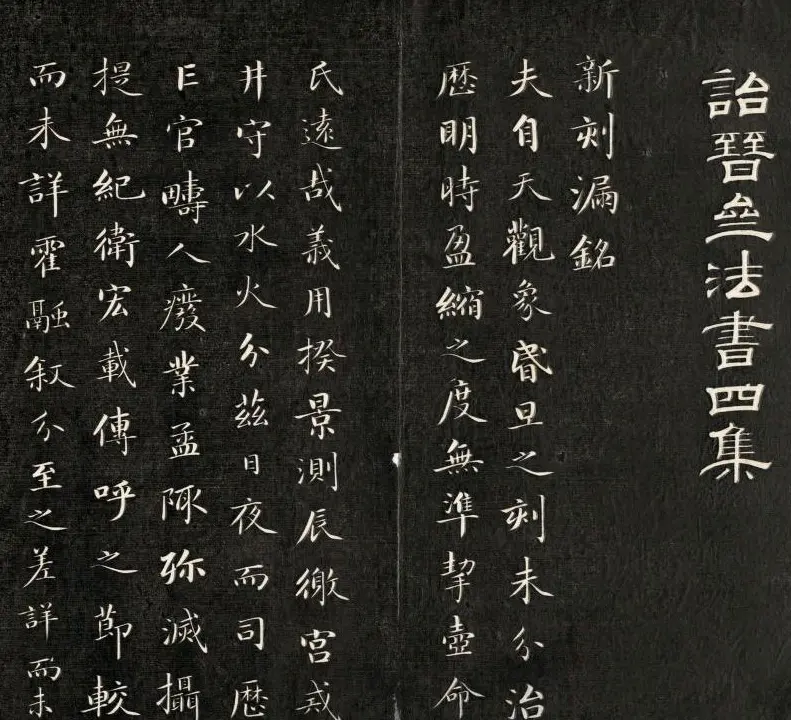 詒晉齋法書四集
新刻漏銘
夫自天觀象昏旦之刻未分治
歷明時盈縮之度無準挈壺命
氏遠哉義用揆景測辰徼宮戒
井守以水火分茲日夜而司歷
亡官疇人廢業孟陬殄滅攝
提無紀衛宏載傳呼之節較
而未詳霍融敘分至之差詳而未